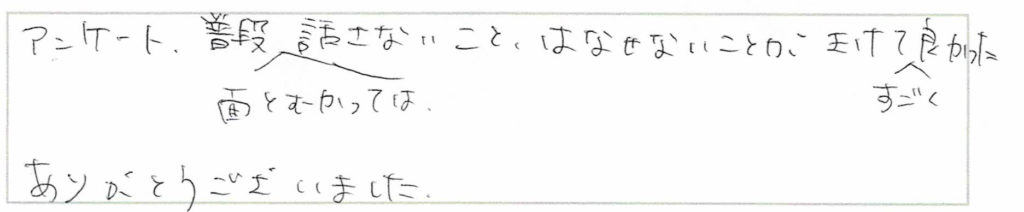 アンケート、普段 話さないこと、はなせないことが、きけて良かった
面とむかっては、
すごく
ありがとうございました。